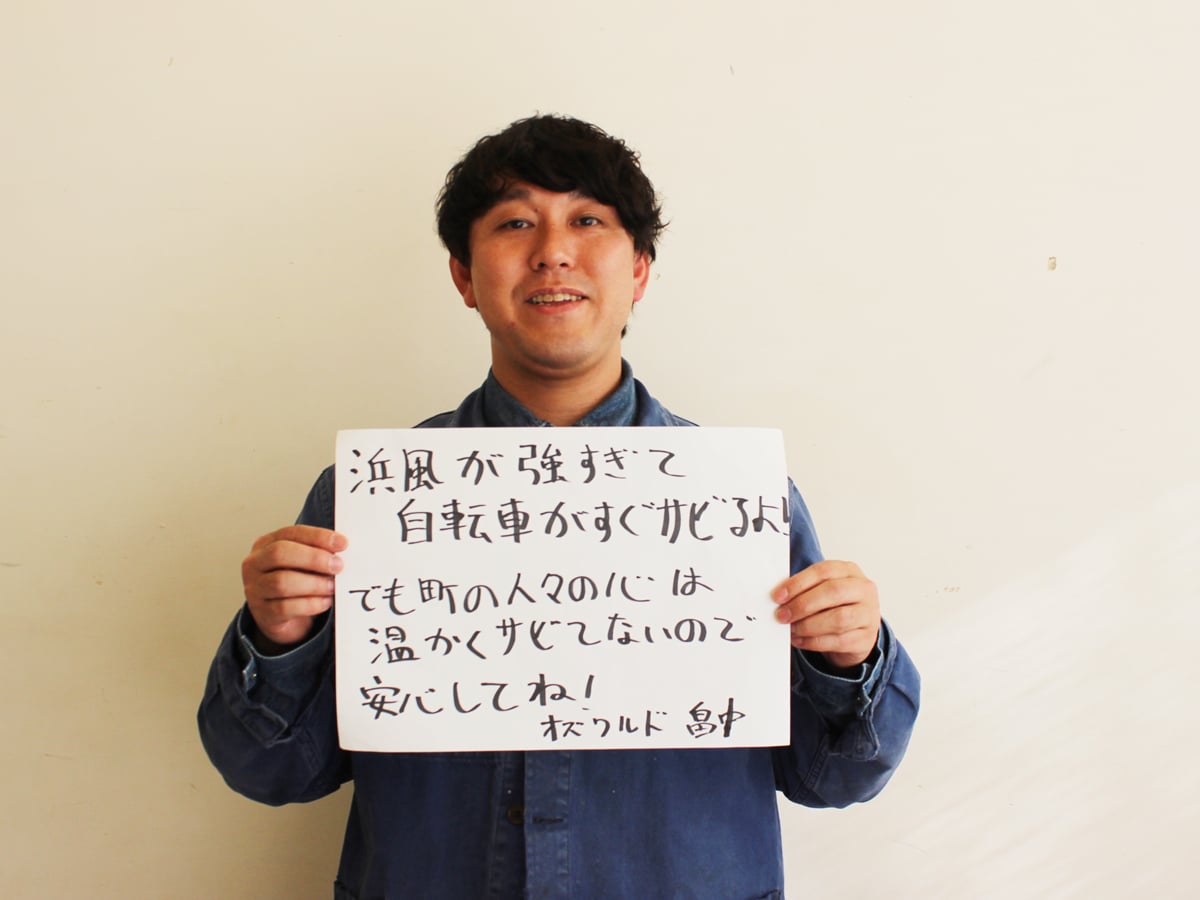 浜風が強すぎて
自転車がすぐサビるよ!
でも町の人々の心は
温かくサビてないので
安心してね!
オズワルド 畠中